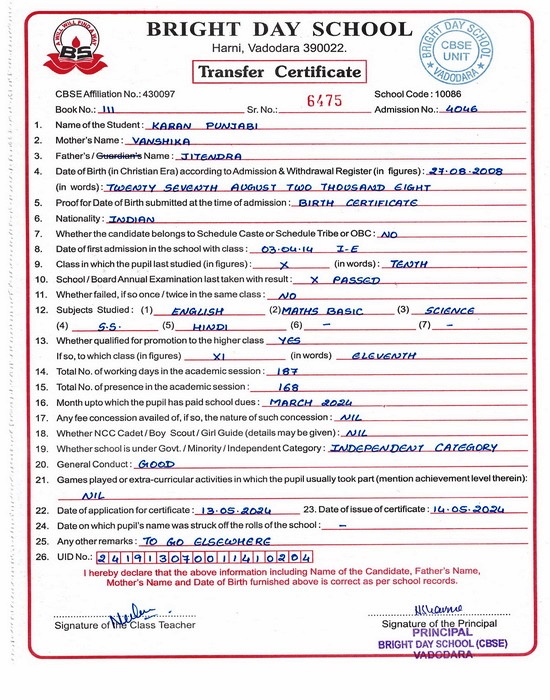 A WILL WILL FIND A WAY
BS
BRIGHT DAY SCHOOL
Harni, Vadodara 390022.
Transfer Certificate
BRIGHT DAY SCHOOL
CBSE
UNIT
★ VADODARA ★
CBSE Affiliation No.: 430097 School Code : 10086
Book No.: III Sr. No.: 6475 Admission No.: 4046
1. Name of the Student : KARAN PUNJABI
2. Mother's Name : VANSHIKA
3. Father's / Guardian's Name : JITENDRA
4. Date of Birth (in Christian Era) according to Admission & Withdrawal Register (in figures) : 27-08-2008
(in words) : TWENTY SEVENTH AUGUST TWO THOUSAND EIGHT
5. Proof for Date of Birth submitted at the time of admission : BIRTH CERTIFICATE
6. Nationality : INDIAN
7. Whether the candidate belongs to Schedule Caste or Schedule Tribe or OBC : NO
8. Date of first admission in the school with class : 03-04-14 I-E
9. Class in which the pupil last studied (in figures) : X (in words) : TENTH
10. School / Board Annual Examination last taken with result : X PASSED
11. Whether failed, if so once / twice in the same class : NO
12. Subjects Studied : (1) ENGLISH (2) MATHS BASIC (3) SCIENCE
(4) S.S. (5) HINDI (6) – (7) –
13. Whether qualified for promotion to the higher class YES
If so, to which class (in figures) XI (in words) ELEVENTH
14. Total No. of working days in the academic session : 187
15. Total No. of presence in the academic session : 168
16. Month upto which the pupil has paid school dues : MARCH 2024
17. Any fee concession availed of, if so, the nature of such concession : NIL
18. Whether NCC Cadet / Boy Scout / Girl Guide (details may be given) : NIL
19. Whether school is under Govt. / Minority / Independent Category : INDEPENDENT CATEGORY
20. General Conduct : GOOD
21. Games played or extra-curricular activities in which the pupil usually took part (mention achievement level therein):
NIL
22. Date of application for certificate : 13-05-2024 23. Date of issue of certificate : 14-05-2024
24. Date on which pupil's name was struck off the rolls of the school : –
25. Any other remarks : TO GO ELSEWHERE
26. UID No.: 241913070011410204
I hereby declare that the above information including Name of the Candidate, Father's Name,
Mother's Name and Date of Birth furnished above is correct as per school records.
Signature of the Class Teacher Signature of the Principal
PRINCIPAL
BRIGHT DAY SCHOOL (CBSE)
VADODARA